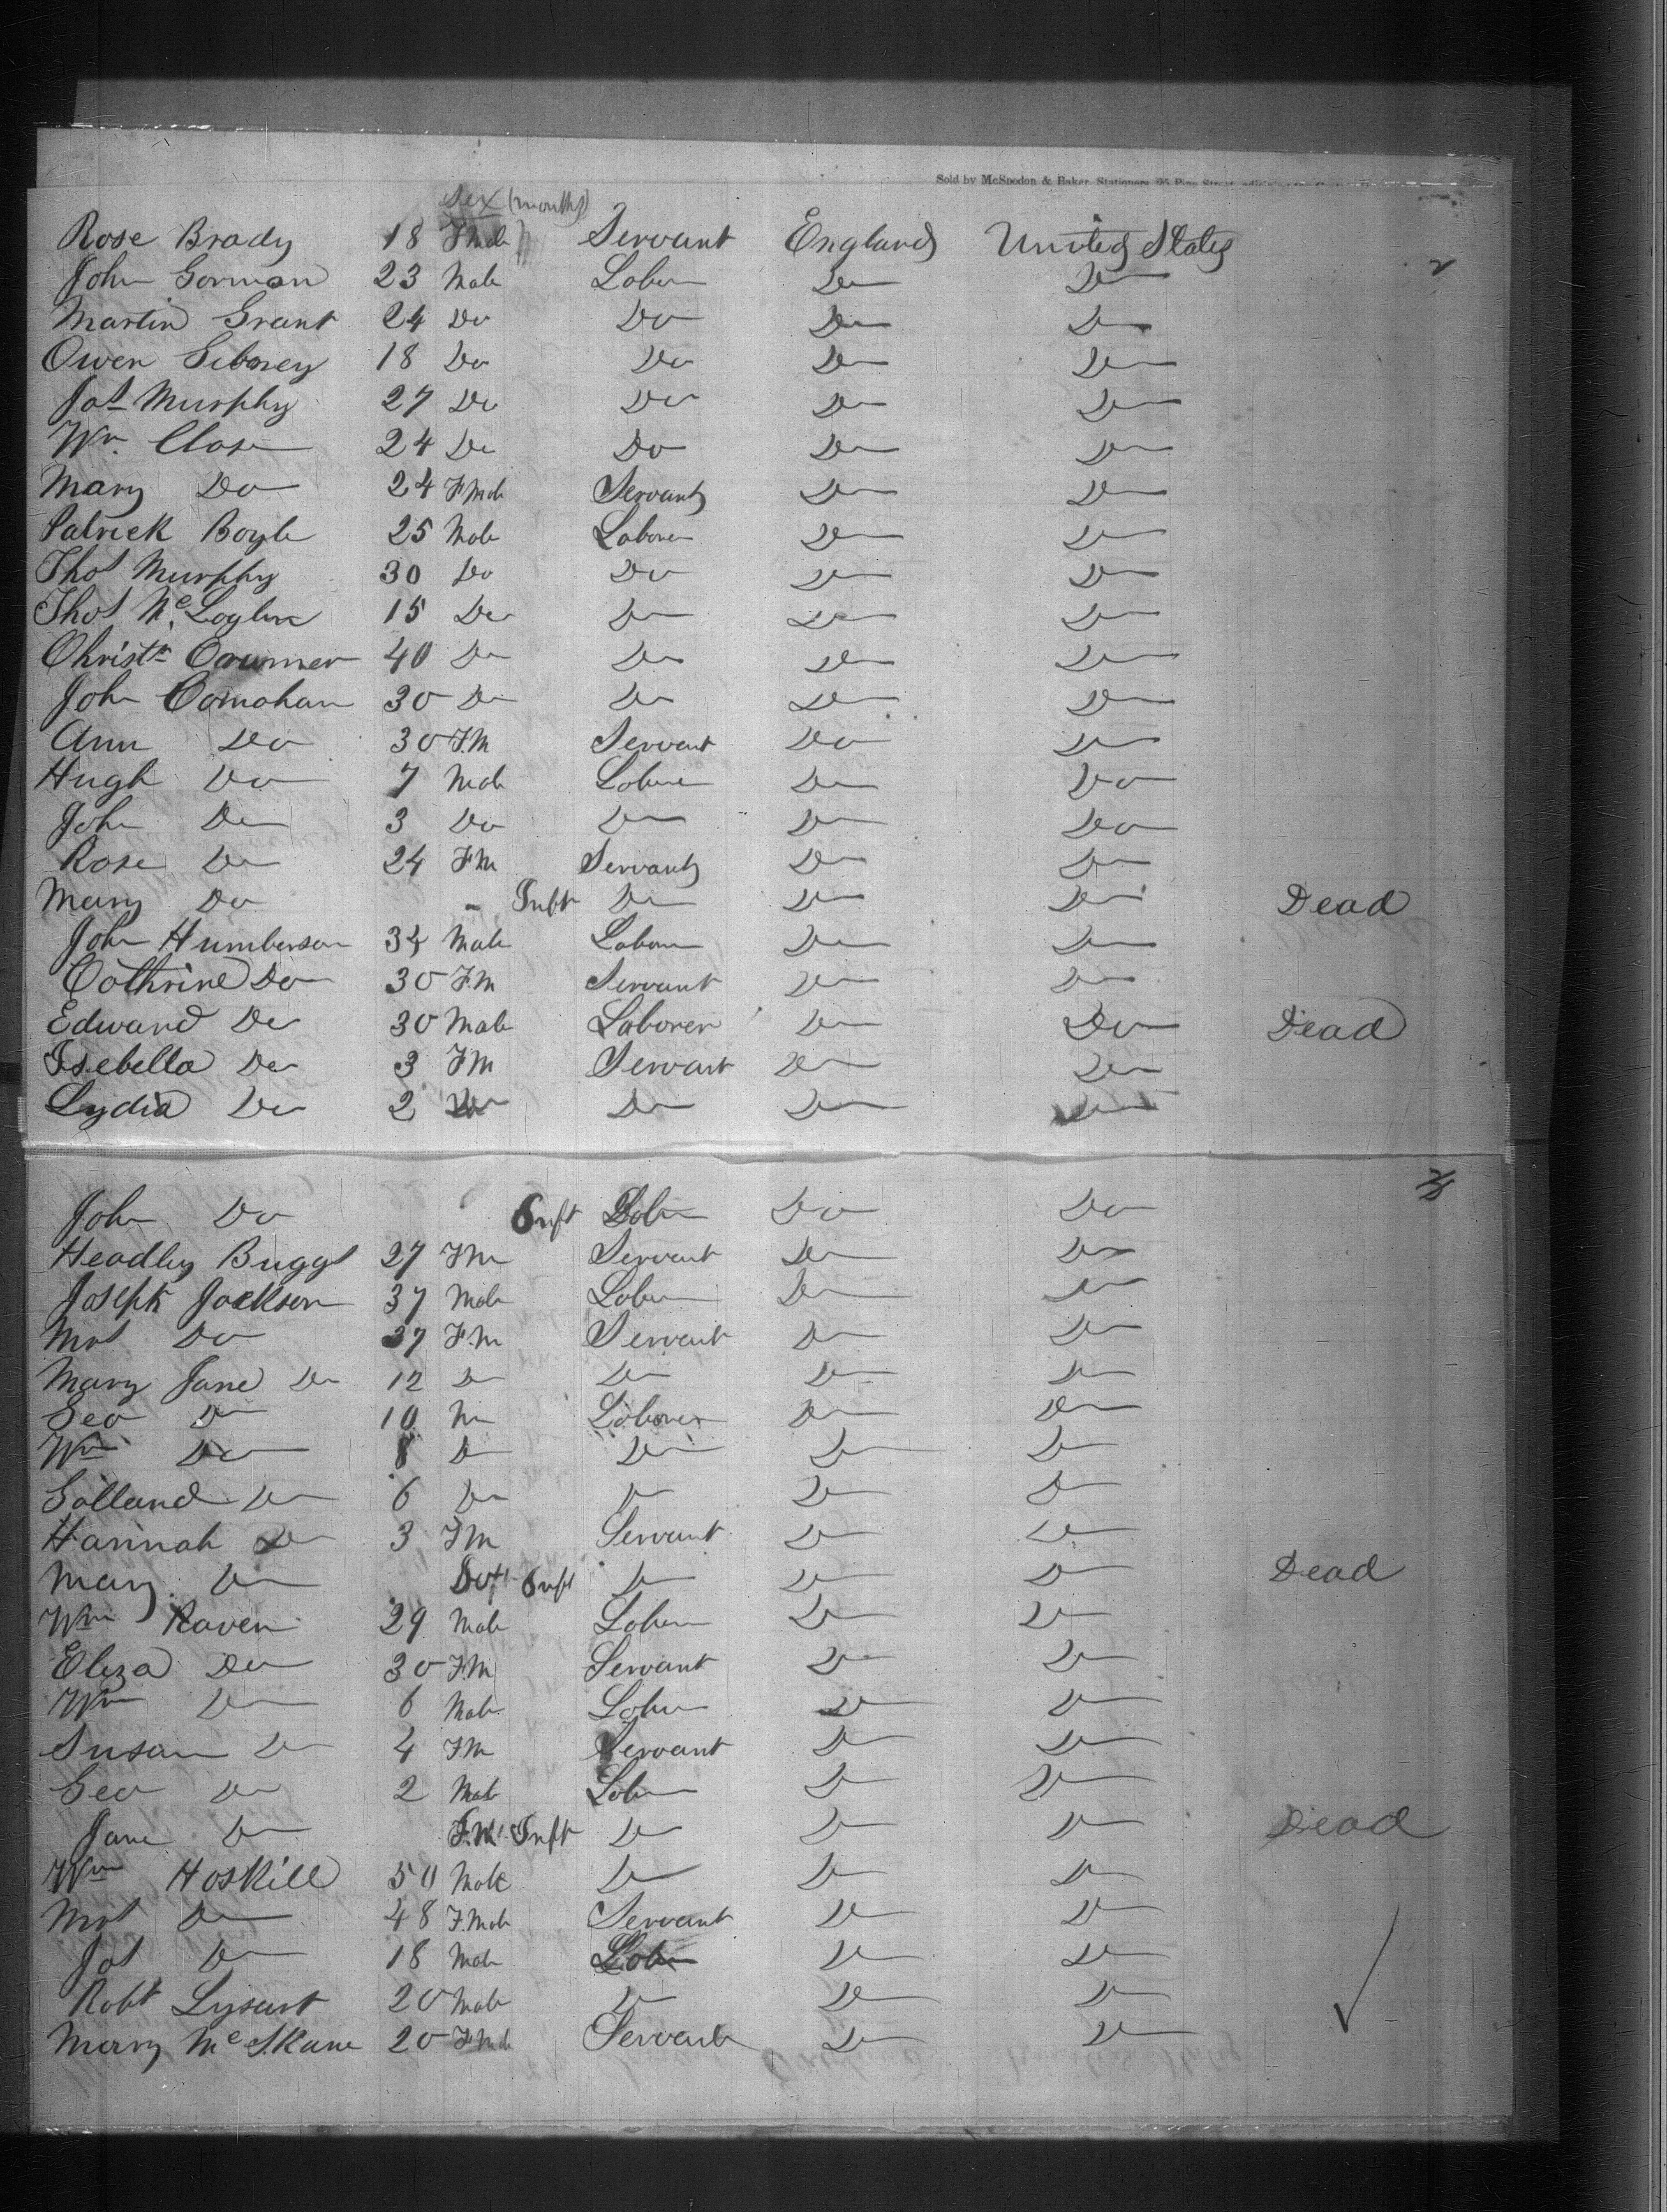 Sold by McSpedon & Baker, Stationers, 25 Pine Street,
Sex (months)
Rose Brady 18 Fmale Servant England United States
John Gorman 23 Male Labr Do Do
Martin Grant 24 Do Do Do Do
Owen Gibney 18 Do Do Do Do
Jas Murphy 27 Do Do Do Do
Wm. Close 24 Do Do Do Do
Mary Do 24 Fmale Servant Do Do
Patrick Boyle 25 Male Laborer Do Do
Thos Murphy 30 Do Do Do Do
Thos McLoglin 15 Do Do Do Do
Christr 40 Do Do Do Do
John Comohan 30 Do Do Do Do
Ann Do 30 F.M Servant Do Do
Hugh Do 7 Male Labore Do Do
John Do 3 Do Do Do Do
Rose Do 24 FM Servant Do Do
Mary Do - Inft Do Do Do Dead
John Humberson 34 Male Labour Do Do
Cathrine Do 30 F.M Servant Do Do
Edward Do 30 Male Laborer Do Do Dead
Isebella Do 3 FM Servant Do Do
Lydia Do 2 Do Do Do Do
John Do Inft Labr Do Do
Headley Buggs 27 Fm Servant Do Do
Joseph Jackson 37 Male Labr Do Do
Mrs Do 37 F.M Servant Do Do
Mary Jane Do 12 Do Do Do Do
Geo Do 10 M Laborer Do Do
Wm Do 8 Do Do Do Do
Golland Do 6 Do Do Do Do
Hannah Do 3 Fm Servant Do Do
Mary Do Inft Do Do Do Dead
Wm Raven 29 Male Labr Do Do
Eliza Do 30 F.M Servant Do Do
Wm Do 6 Male Labr Do Do
Susan Do 4 FM Servant Do Do
Geo Do 2 Male Labr Do Do
Jane Do F.M Inft Do Do Do Dead
Wm Hoskill 50 Male Do Do Do
Mrs Do 48 F.Male Servant Do Do
Jas Do 18 Male Labr Do Do
Robt Lysart 20 Male Do Do Do
Mary McSkane 20 Fmale Servant Do Do